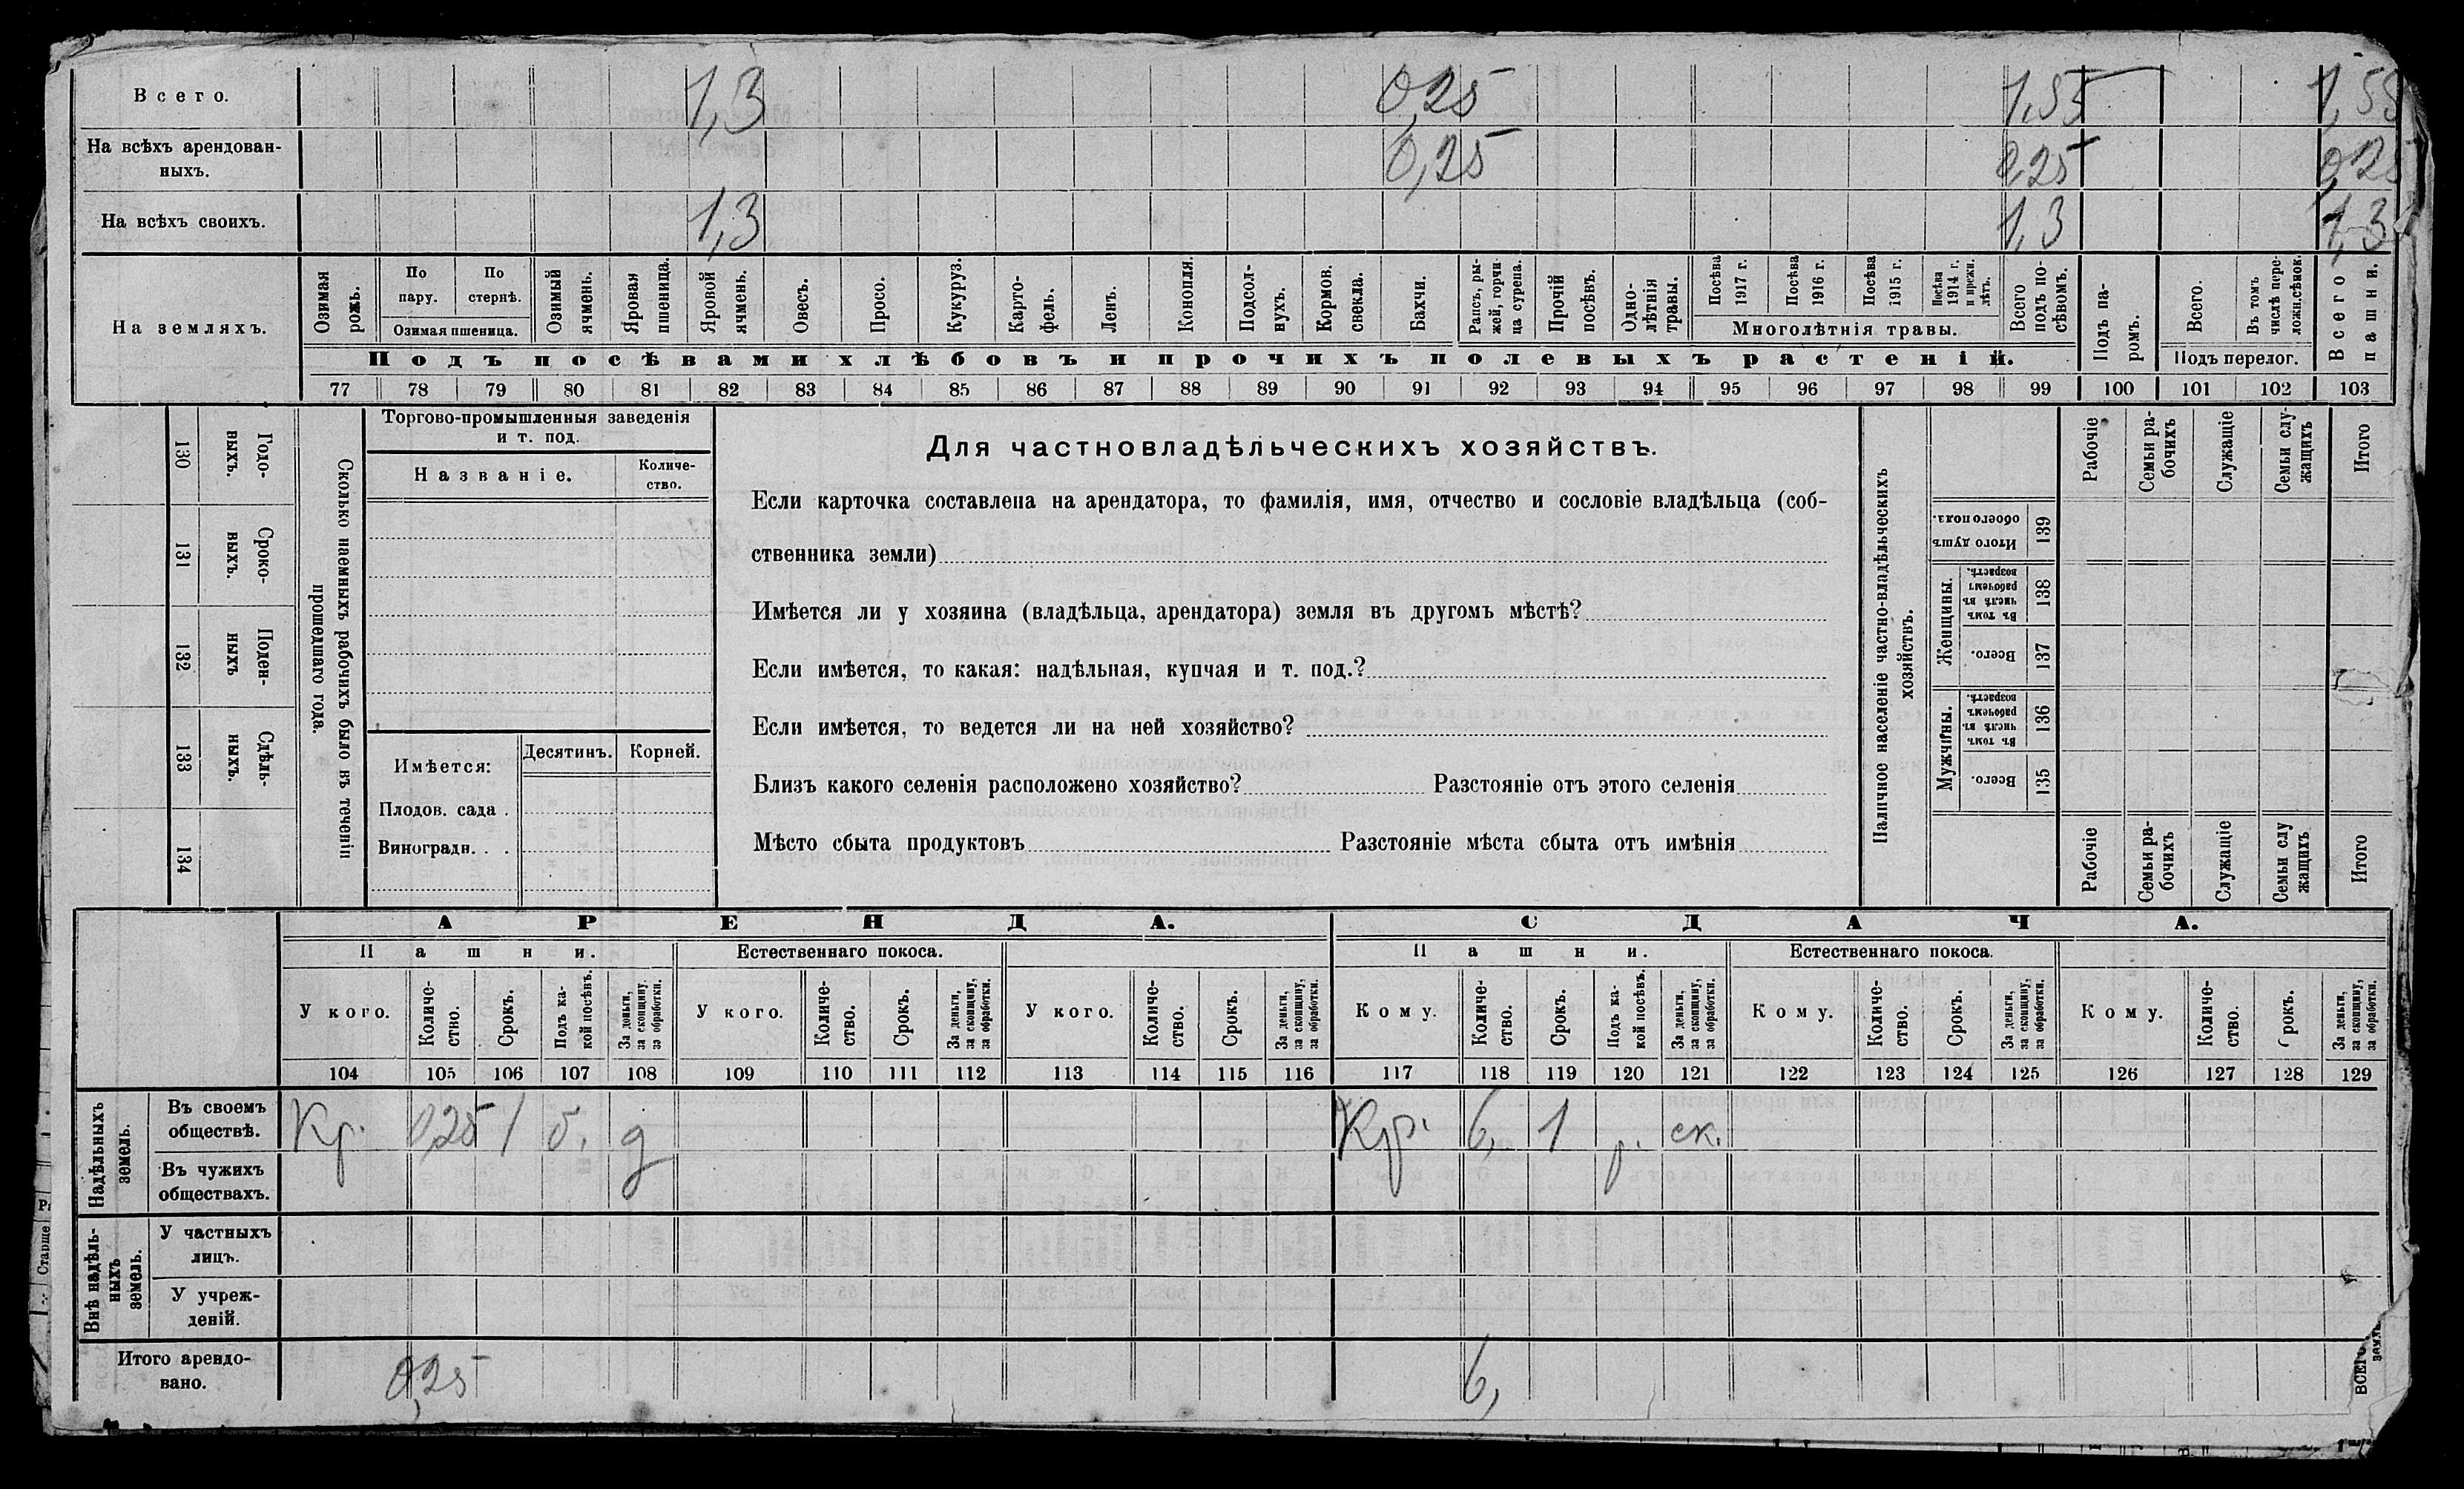 Всего. 1,3 0,25 1,55 1,55
На всѣхъ арендован-
ныхъ. 0,25 0,25 0,25
На всѣхъ своихъ. 1,3 1,3 1,3
На земляхъ.
Озимая
рожь.
По
пару.
По
стернѣ.
Озимая пшеница.
Озимый
ячмень.
Яровая
пшеница.
Яровой
ячмень.
Овесъ.
Просо.
Кукуруз.
Карто-
фель.
Ленъ.
Конопля.
Подсол-
нухъ.
Кормов.
свекла.
Бахчи.
Рапсъ, ры-
жей, горчи-
ца сурепа.
Прочій
посѣвъ.
Одно-
лѣтнія
травы.
Посѣва
1917 г.
Посѣва
1916 г.
Посѣва
1915 г.
Посѣва
1914 г.
и прежн.
лѣтъ.
Многолѣтнія травы.
Всего
подъ по-
сѣвомъ.
Подъ па-
ромъ.
Всего.
Въ томъ
числѣ пере-
ложн.сѣнок.
Подъ перелог.
Всего
пашни.
Подъ посѣвами хлѣбовъ и прочихъ полевыхъ растеній.
77 78 79 80 81 82 83 84 85 86 87 88 89 90 91 92 93 94 95 96 97 98 99 100 101 102 103
Сколько наемныхъ рабочихъ было въ теченіи
прошедшаго года.
Годо-
выхъ.
130
Сроко-
выхъ.
131
Поден-
ныхъ
132
Сдѣль-
ныхъ.
133
134
Торгово-промышленныя заведенія
и т. под.
Названіе.
Количе-
ство.
Имѣется: Десятинъ. Корней.
Плодов. сада .
Виноградн. . .
Для частновладѣльческихъ хозяйствъ.
Если карточка составлена на арендатора, то фамилія, имя, отчество и сословіе владѣльца (соб-
ственника земли)
Имѣется ли у хозяина (владѣльца, арендатора) земля въ другомъ мѣстѣ?
Если имѣется, то какая: надѣльная, купчая и т. под.?
Если имѣется, то ведется ли на ней хозяйство?
Близъ какого селенія расположено хозяйство? Разстояніе отъ этого селенія
Мѣсто сбыта продуктовъ Разстояніе мѣста сбыта отъ имѣнія
Наличное населеніе частно-владѣльческихъ
хозяйствъ.
Рабочіе
Семьи ра-
бочихъ
Служащіе
Семьи слу-
жащихъ
Итого
Итого душъ
обоего пола.
139
Женщины.
Въ томъ
числѣ въ
рабочемъ
возрастѣ.
138
Всего.
137
Мужчины.
Въ томъ
числѣ въ
рабочемъ
возрастѣ.
136
Всего.
135
Рабочіе
Семьи ра-
бочихъ
Служащіе
Семьи слу
жащихъ
Итого
АРЕНДА. СДАЧА.
Пашни. Естественнаго покоса. Пашни. Естественнаго покоса.
У кого.
Количе-
ство.
Срокъ.
Подъ ка-
кой посѣвъ.
За деньги,
за скопщину,
за обработки.
У кого.
Количе-
ство.
Срокъ.
За деньги,
за скопщину,
за обработки.
У кого.
Количе-
ство.
Срокъ.
За деньги,
за скопщину,
за обработки.
Кому.
Количе-
ство.
Срокъ.
Подъ ка-
кой посѣвъ.
За деньги,
за скопщину,
за обработки.
Кому.
Количе-
ство.
Срокъ.
За деньги,
за скопщину,
за обработки.
Кому.
Количе-
ство.
Срокъ.
За деньги,
за скопщину,
за обработки.
104 105 106 107 108 109 110 111 112 113 114 115 116 117 118 119 120 121 122 123 124 125 126 127 128 129
Надѣльныхъ
земель.
Въ своемъ
обществѣ. Кр. 0,25 1 б. д Кр. 6, 1 р. ск.
Въ чужихъ
обществахъ.
Внѣ надѣль-
ныхъ
земель.
У частныхъ
лицъ.
У учреж-
деній.
Итого арендо-
вано. 0,25 6,
Старше